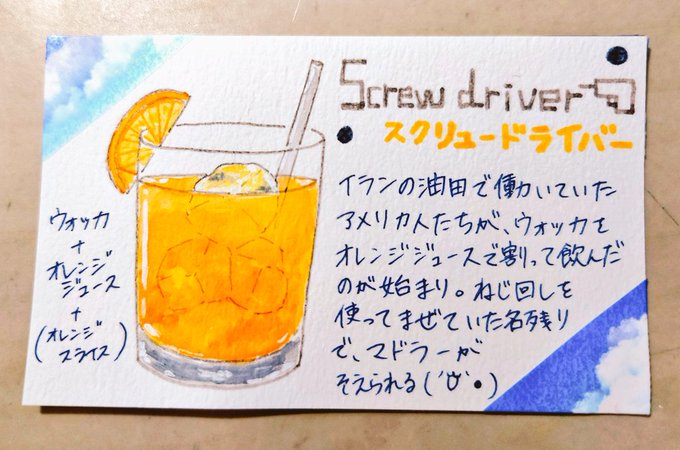 Screw driver
スクリュードライバー
イランの油田で働いていた
アメリカ人たちが、ウォッカを
オレンジジュースで割って飲んだ
のが始まり。ねじ回しを
使ってまぜていた名残り
で、マドラーが
そえられる(´▽`•)
ウォッカ
+
オレンジ
ジュース
+
(オレンジ
スライス)